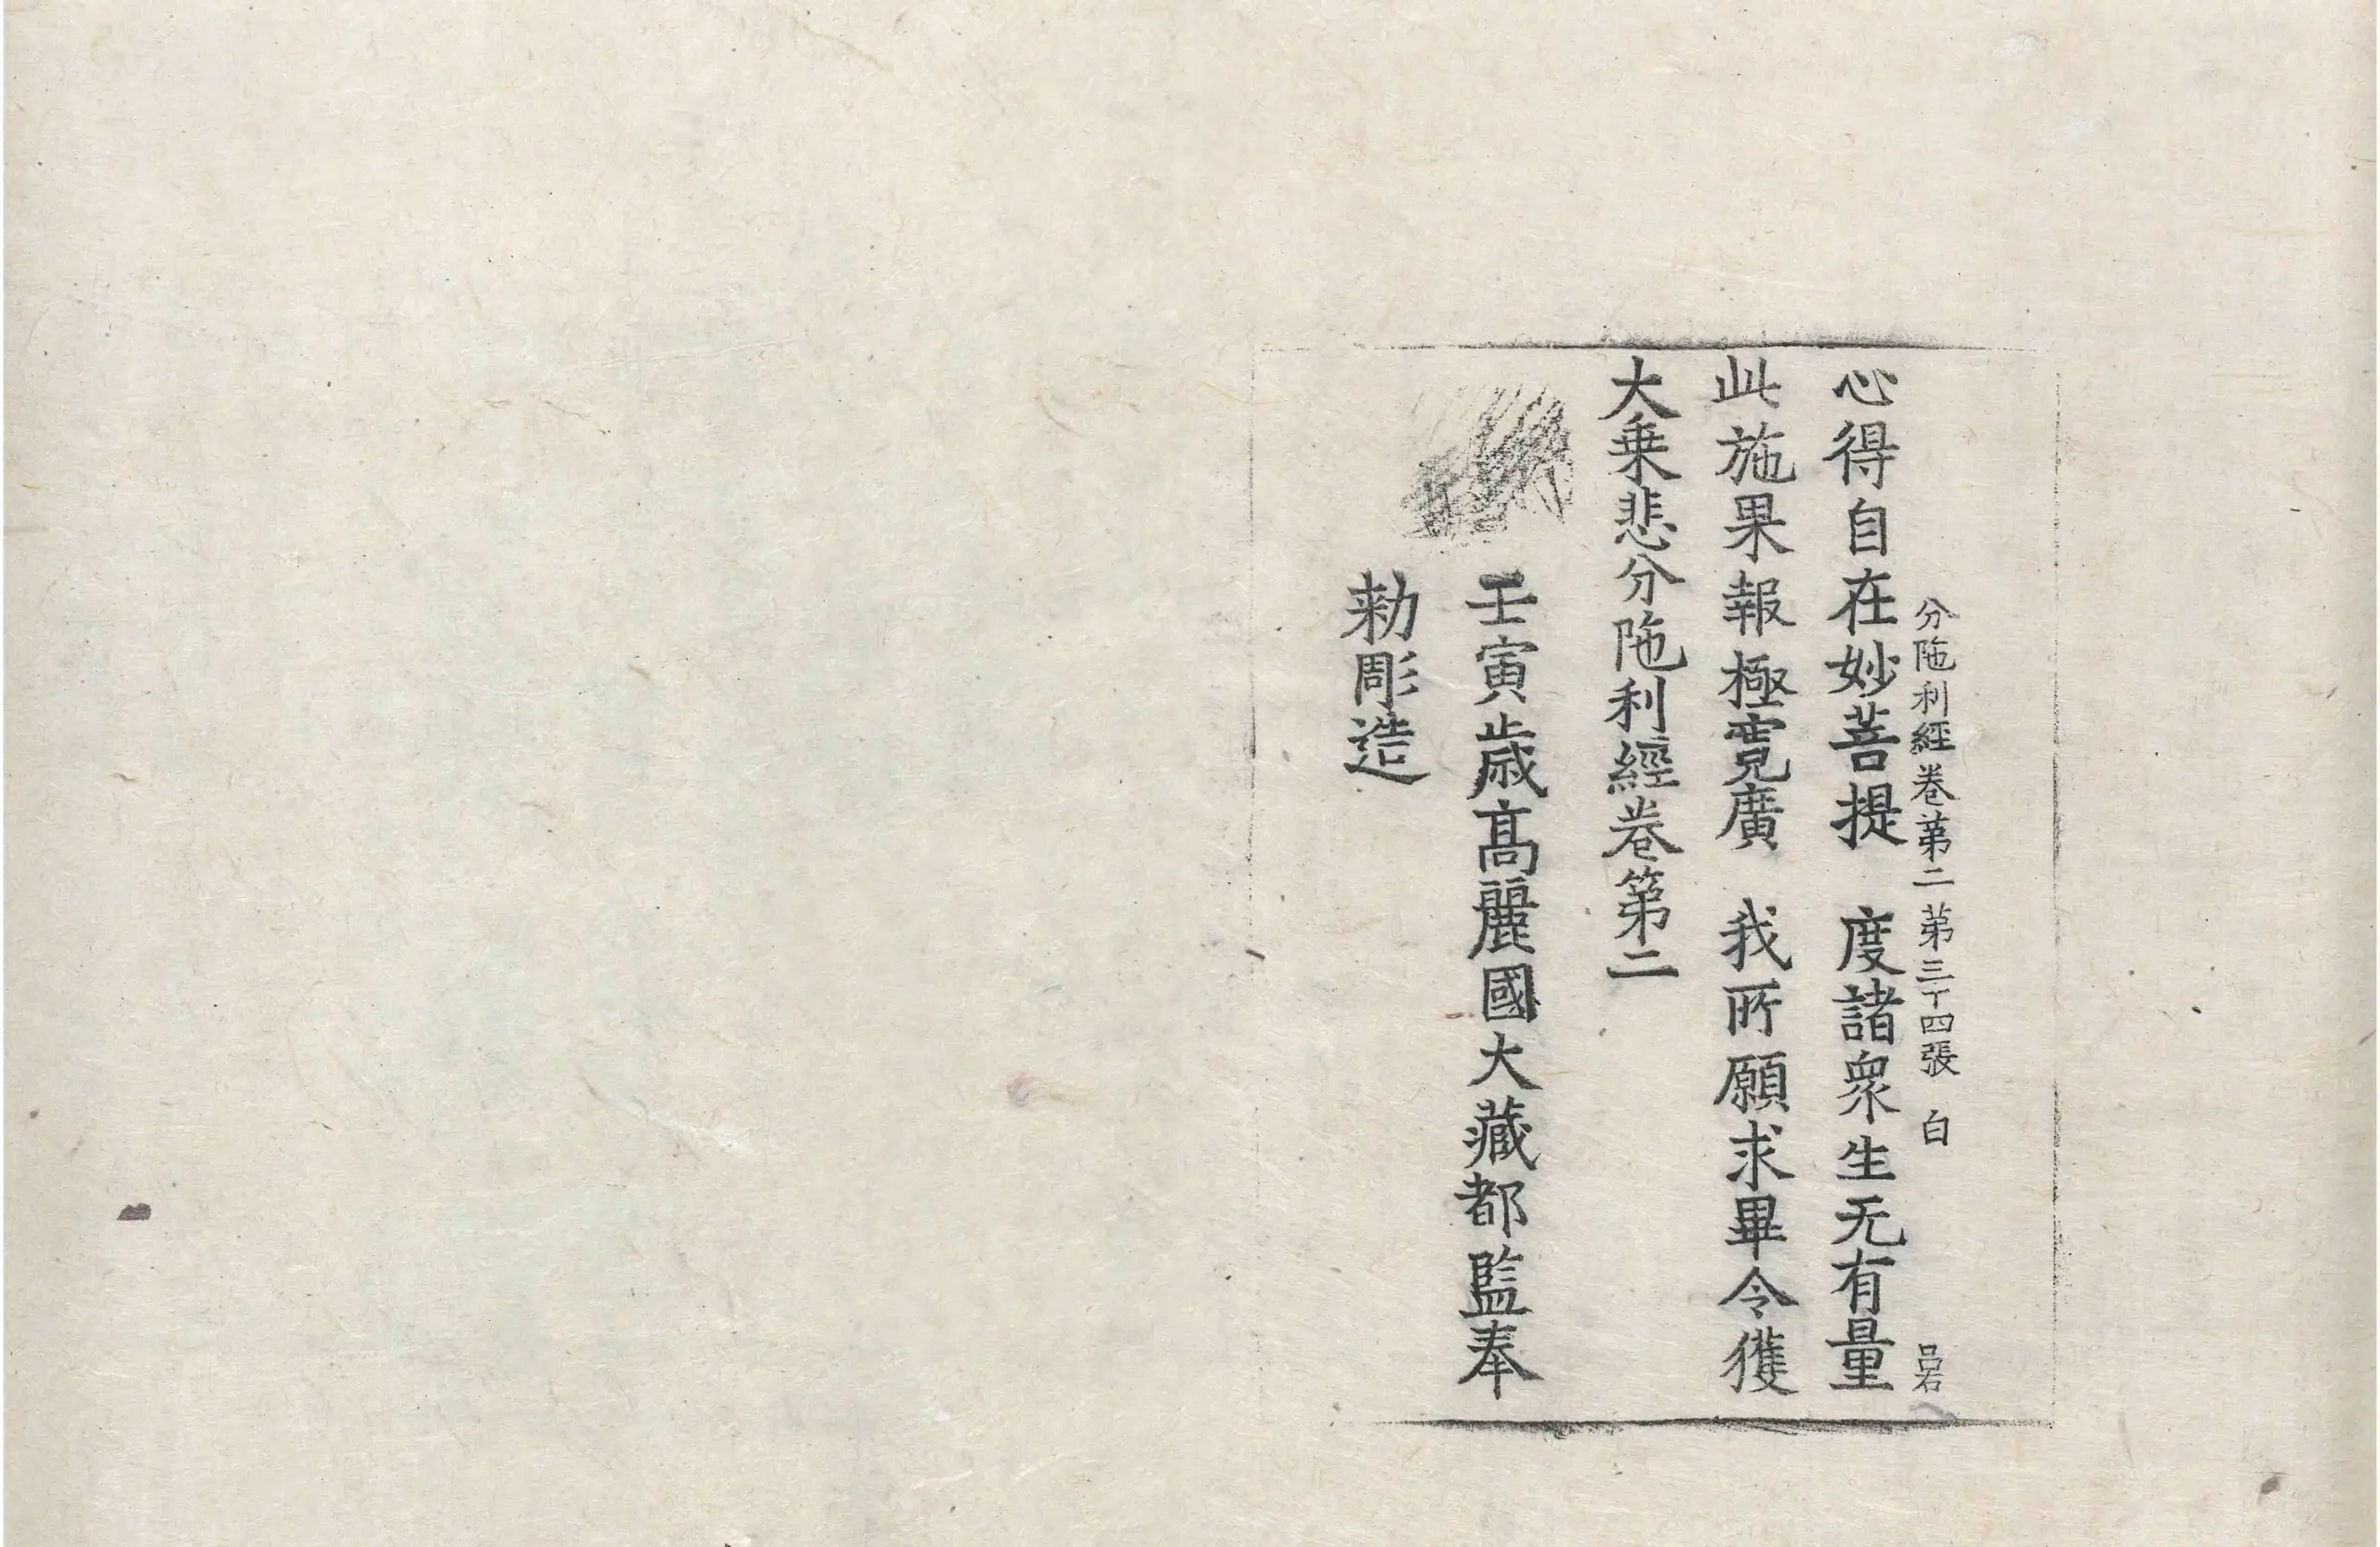 分陁利經卷第二 第三十四張 白
心得自在妙菩提 度諸衆生无有量
此施果報極寛廣 我所願求畢令獲
大乗悲分陁利經卷第二
壬寅歳高麗國大藏都監奉
勑彫造